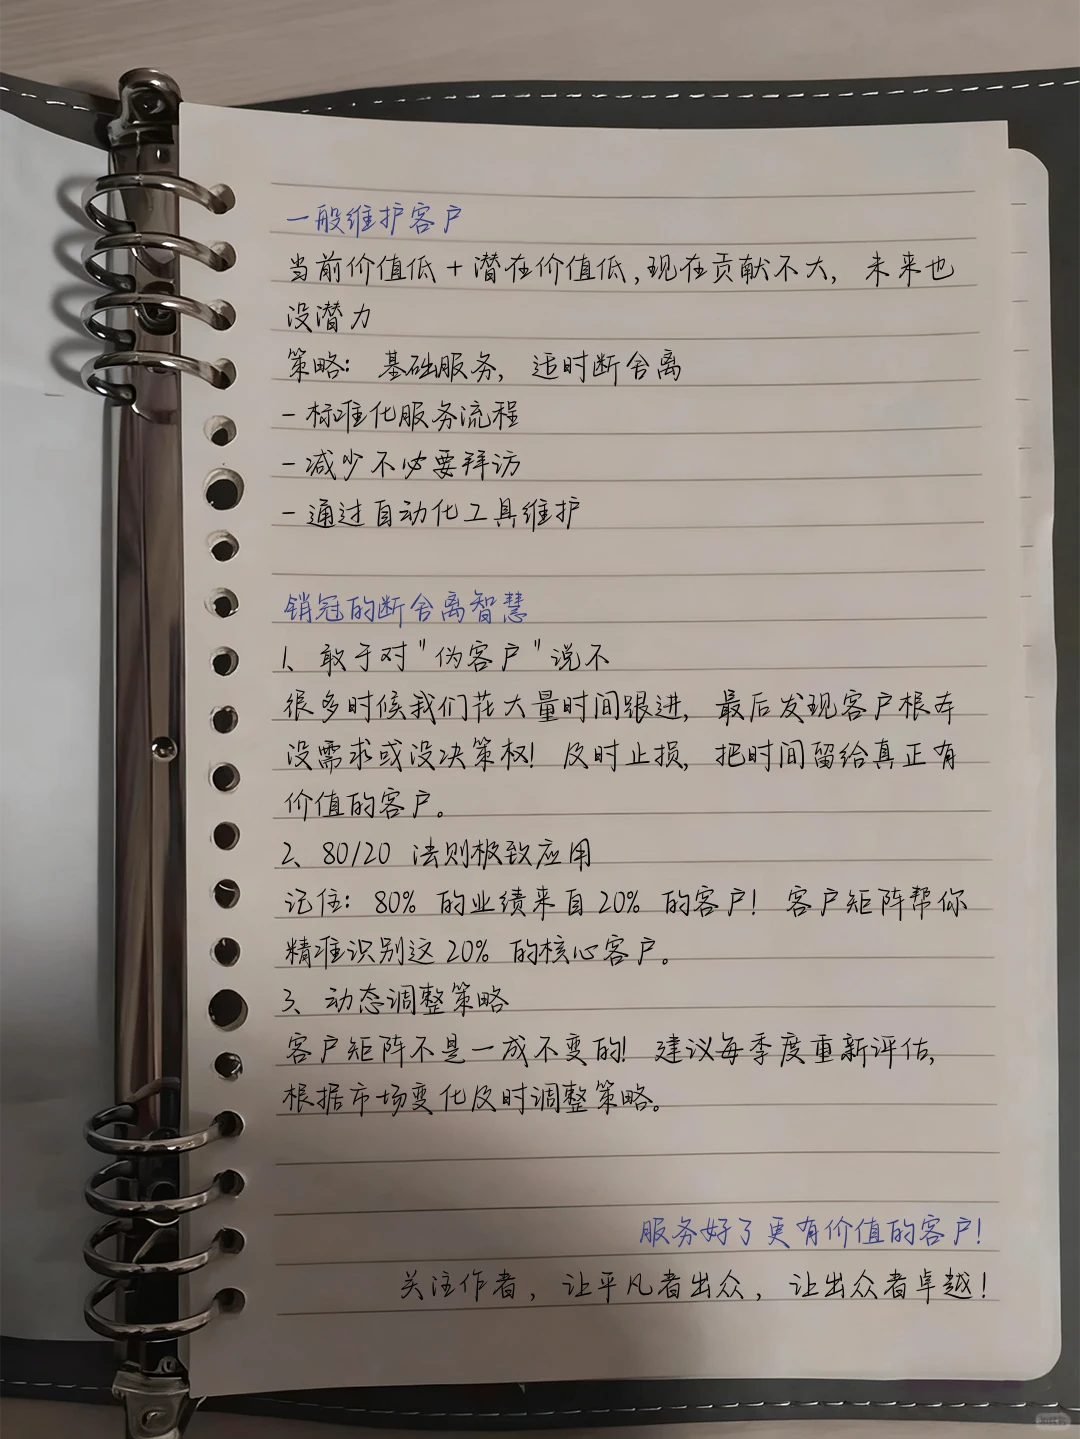 一般维护客户
当前价值低+潜在价值低,现在贡献不大, 未来也
没潜力
策略: 基础服务, 适时断舍离
-标准化服务流程
-减少不必要拜访
-通过自动化工具维护
销冠的断舍离智慧
1、敢于对"伪客户"说不
很多时候我们花大量时间跟进, 最后发现客户根本
没需求或没决策权! 及时止损, 把时间留给真正有
价值的客户。
2、80/20 法则极致应用
记住: 80% 的业绩来自20% 的客户! 客户矩阵帮你
精准识别这20% 的核心客户。
3、动态调整策略
客户矩阵不是一成不变的! 建议每季度重新评估,
根据市场变化及时调整策略。
服务好了更有价值的客户!
关注作者, 让平凡者出众, 让出众者卓越!